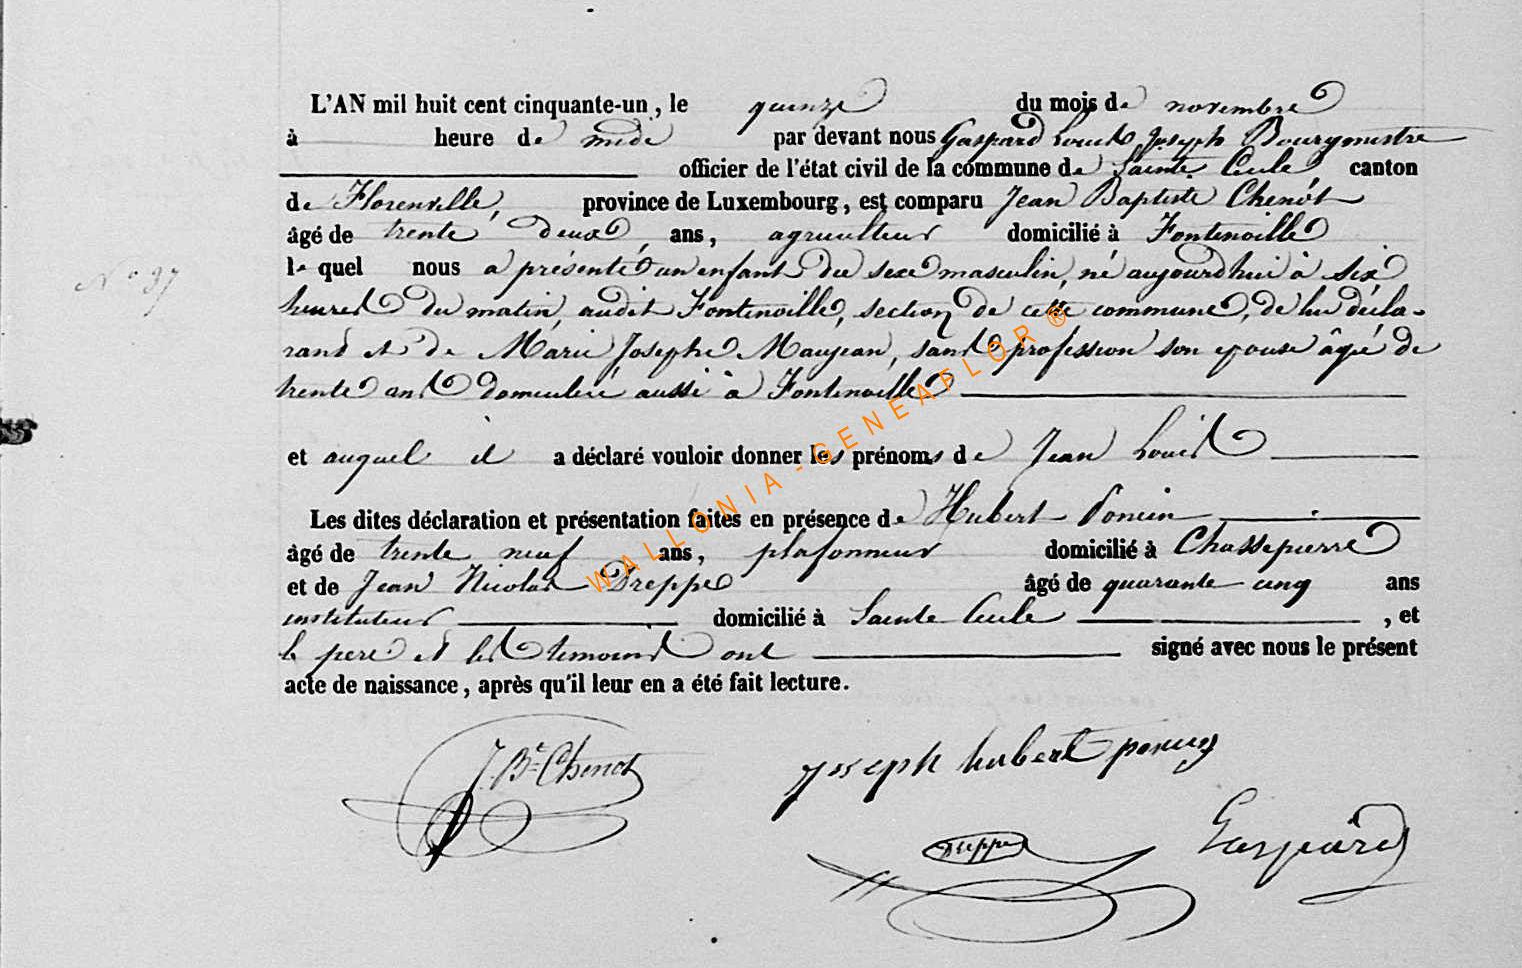 L'AN mil huit cent cinquante-un, le quinze du mois de novembre
à heure de midi par devant nous Gaspard Louis Joseph Bourgmestre
officier de l'état civil de la commune de Sainte Cecile, canton
de Florenville, province de Luxembourg, est comparu Jean Baptiste Chenôt
âgé de trente deux ans, agriculteur domicilié à Fontenoille
le quel nous a présenté un enfant du sexe masculin, né aujourd'hui à six
heures du matin, audit Fontenoille, section de cette commune, de lui décla-
rant et de Marie Josephe Maujean, sans profession son epouse âgée de
trente ans domiciliée aussi à Fontenoille
et auquel il a déclaré vouloir donner les prénoms de Jean Louis
Les dites déclaration et présentation faites en présence de Hubert Poncin
âgé de trente neuf ans, plafonneur domicilié à Chassepierre
et de Jean Nicolas Dreppe âgé de quarante cinq ans
instituteur domicilié à Sainte Cecile, et
le pere et les temoins ont signé avec nous le présent
acte de naissance, après qu'il leur en a été fait lecture.
N° 37
J. Bte Chenot
Joseph hubert poncin
Dreppe
Gaspard
WALLONIA-GENEAFLOR®